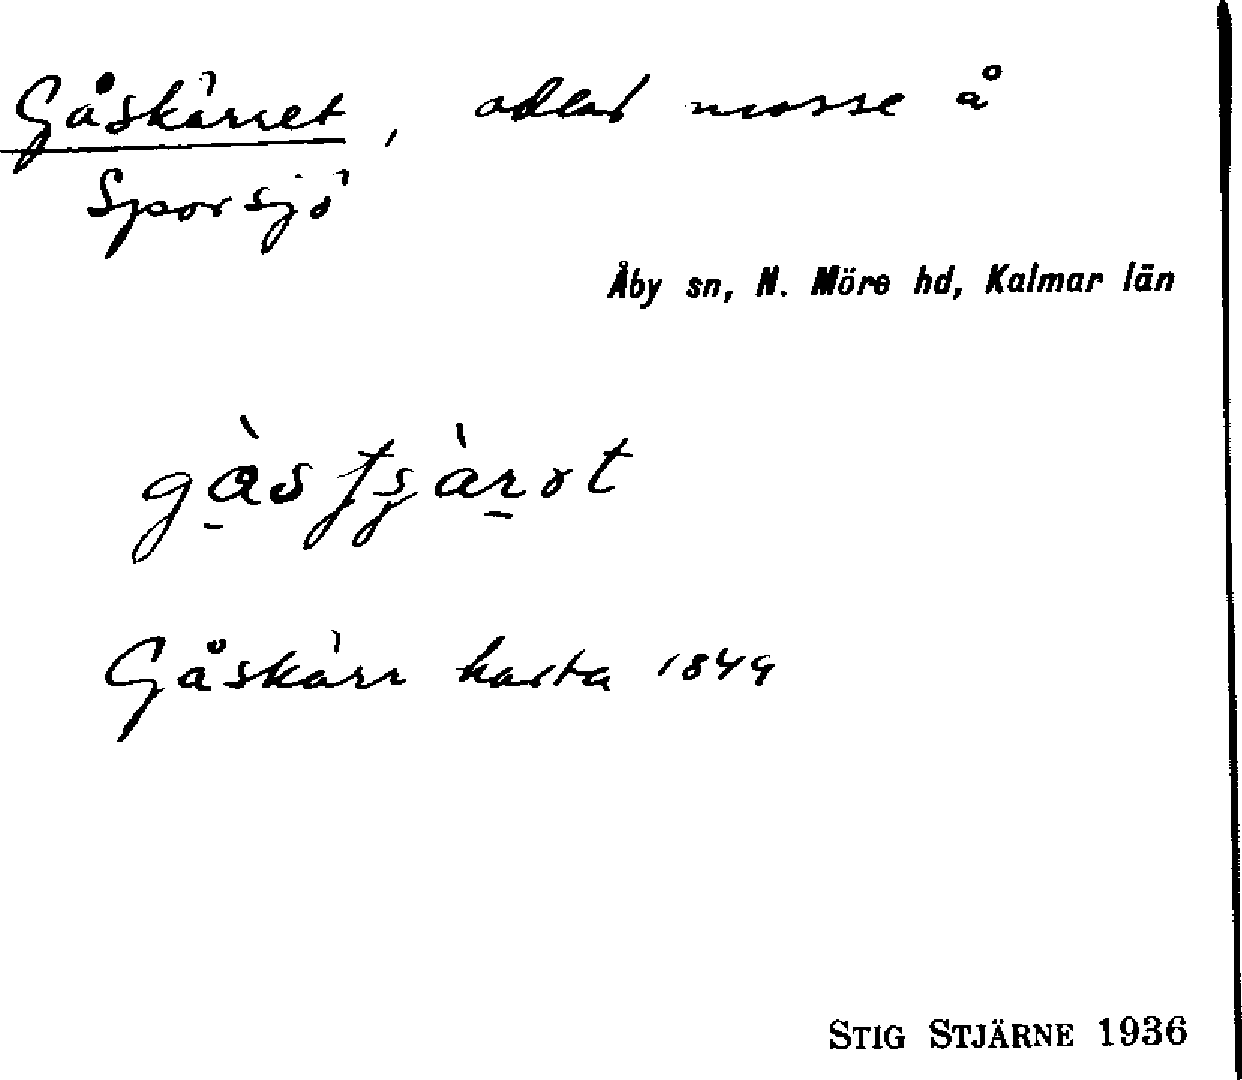 Gåskärret, odlad mosse å
Sporsjö
Åby sn, N. Möre hd, Kalmar län
Gåskärr karta 1849
STIG STJÄRNE 1936